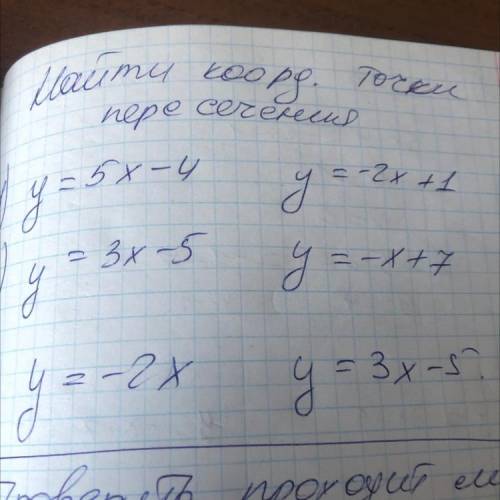 Найти коорд. точки
пересечения
) y = 5x - 4 y = -2x + 1
) y = 3x - 5 y = -x + 7
y = -2x y = 3x - 5.
Проверить проходит ли